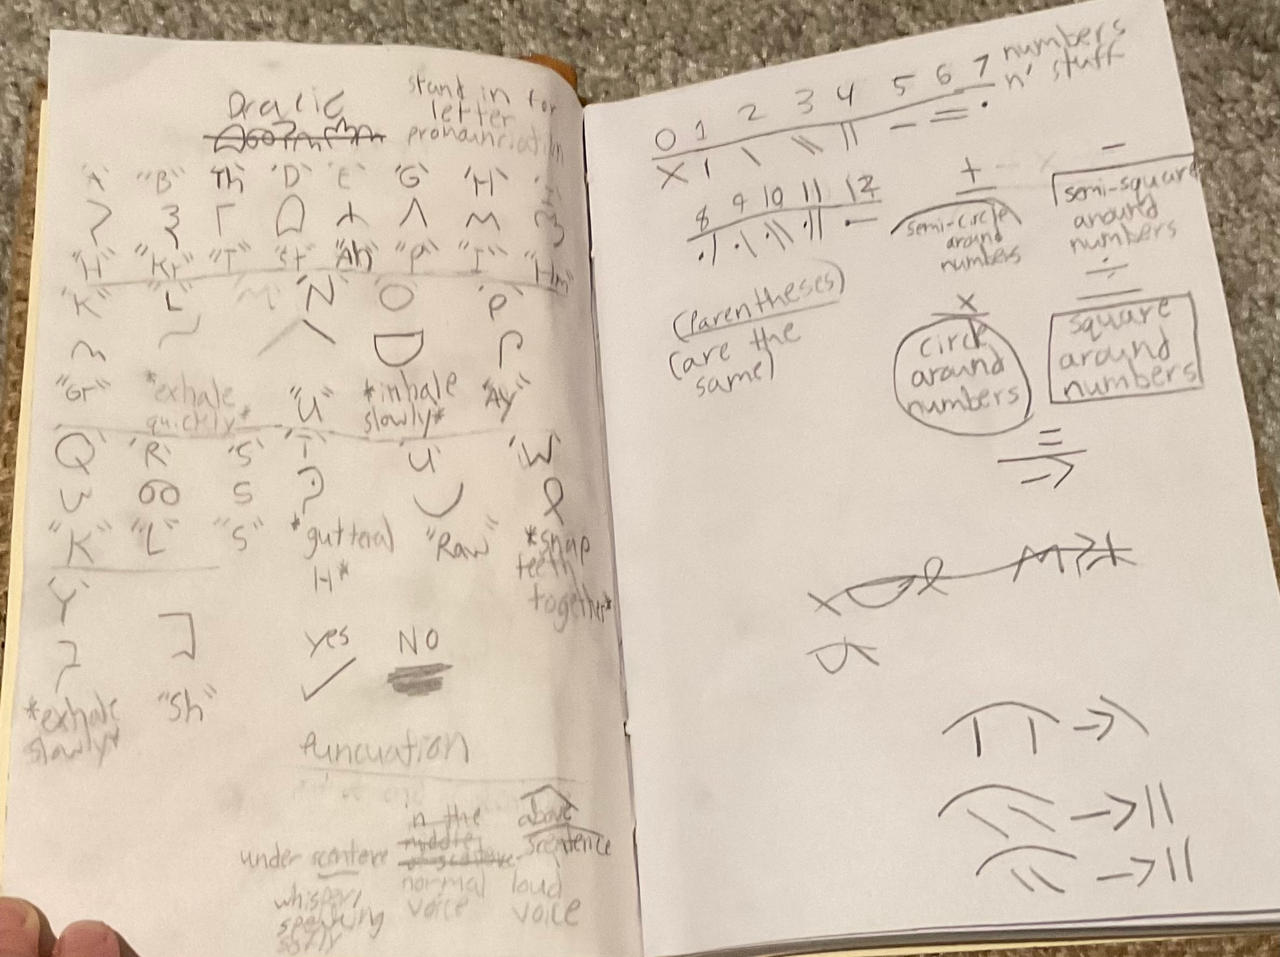 Dralic
stand in for
letter
pronounciation
'A' "B" 'Th' 'D' 'E' 'G' 'H' 'I'
"H" "Kr" "T" "Ah" "P" "I" "Hm"
'K' 'L' 'M' 'N' 'O' 'P'
"Gr" *exhale quickly* "U" *inhale slowly* "Ay"
'Q' 'R' 'S' 'T' 'U' 'W'
"K" "L" "S" *gutteral H* "Raw" *snap teeth together*
'Y'
*exhale slowly* "Sh"
yes NO
✓
Puncuation
under scentence
whisper/
speaking
softly
in the
middle
normal
voice
above
scentence
loud
voice
numbers
n' stuff
0 1 2 3 4 5 6 7
8 9 10 11 12
+
semi-circle
around
numbers
-
semi-square
around
numbers
(Parentheses)
(are the
same)
×
circle
around
numbers
÷
square
around
numbers
=
→